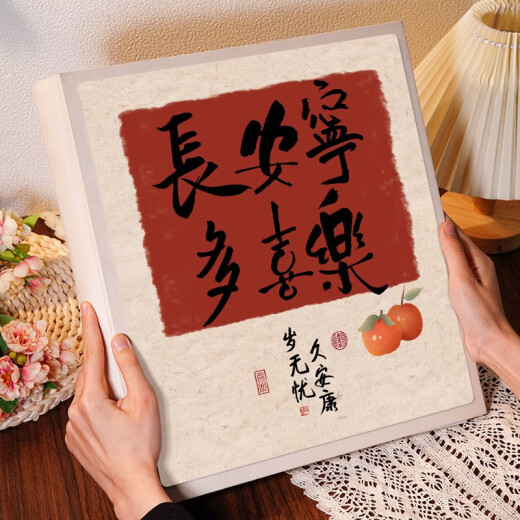 長安寧
多喜樂
久安康
岁无忧